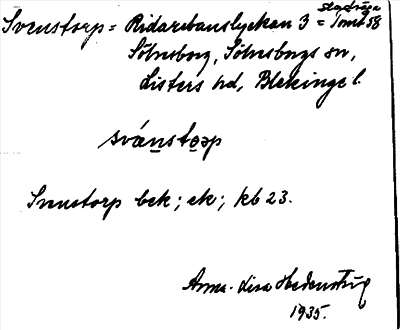 Svenstorp = Ridarebanslyckan 3 = Tomt 58
Sölvesborg, Sölvesborgs sn,
Listers hd, Blekinge l.
svánstọrp
Svenstorp bek; ek; kb 23.
Anna-Lisa
1935.